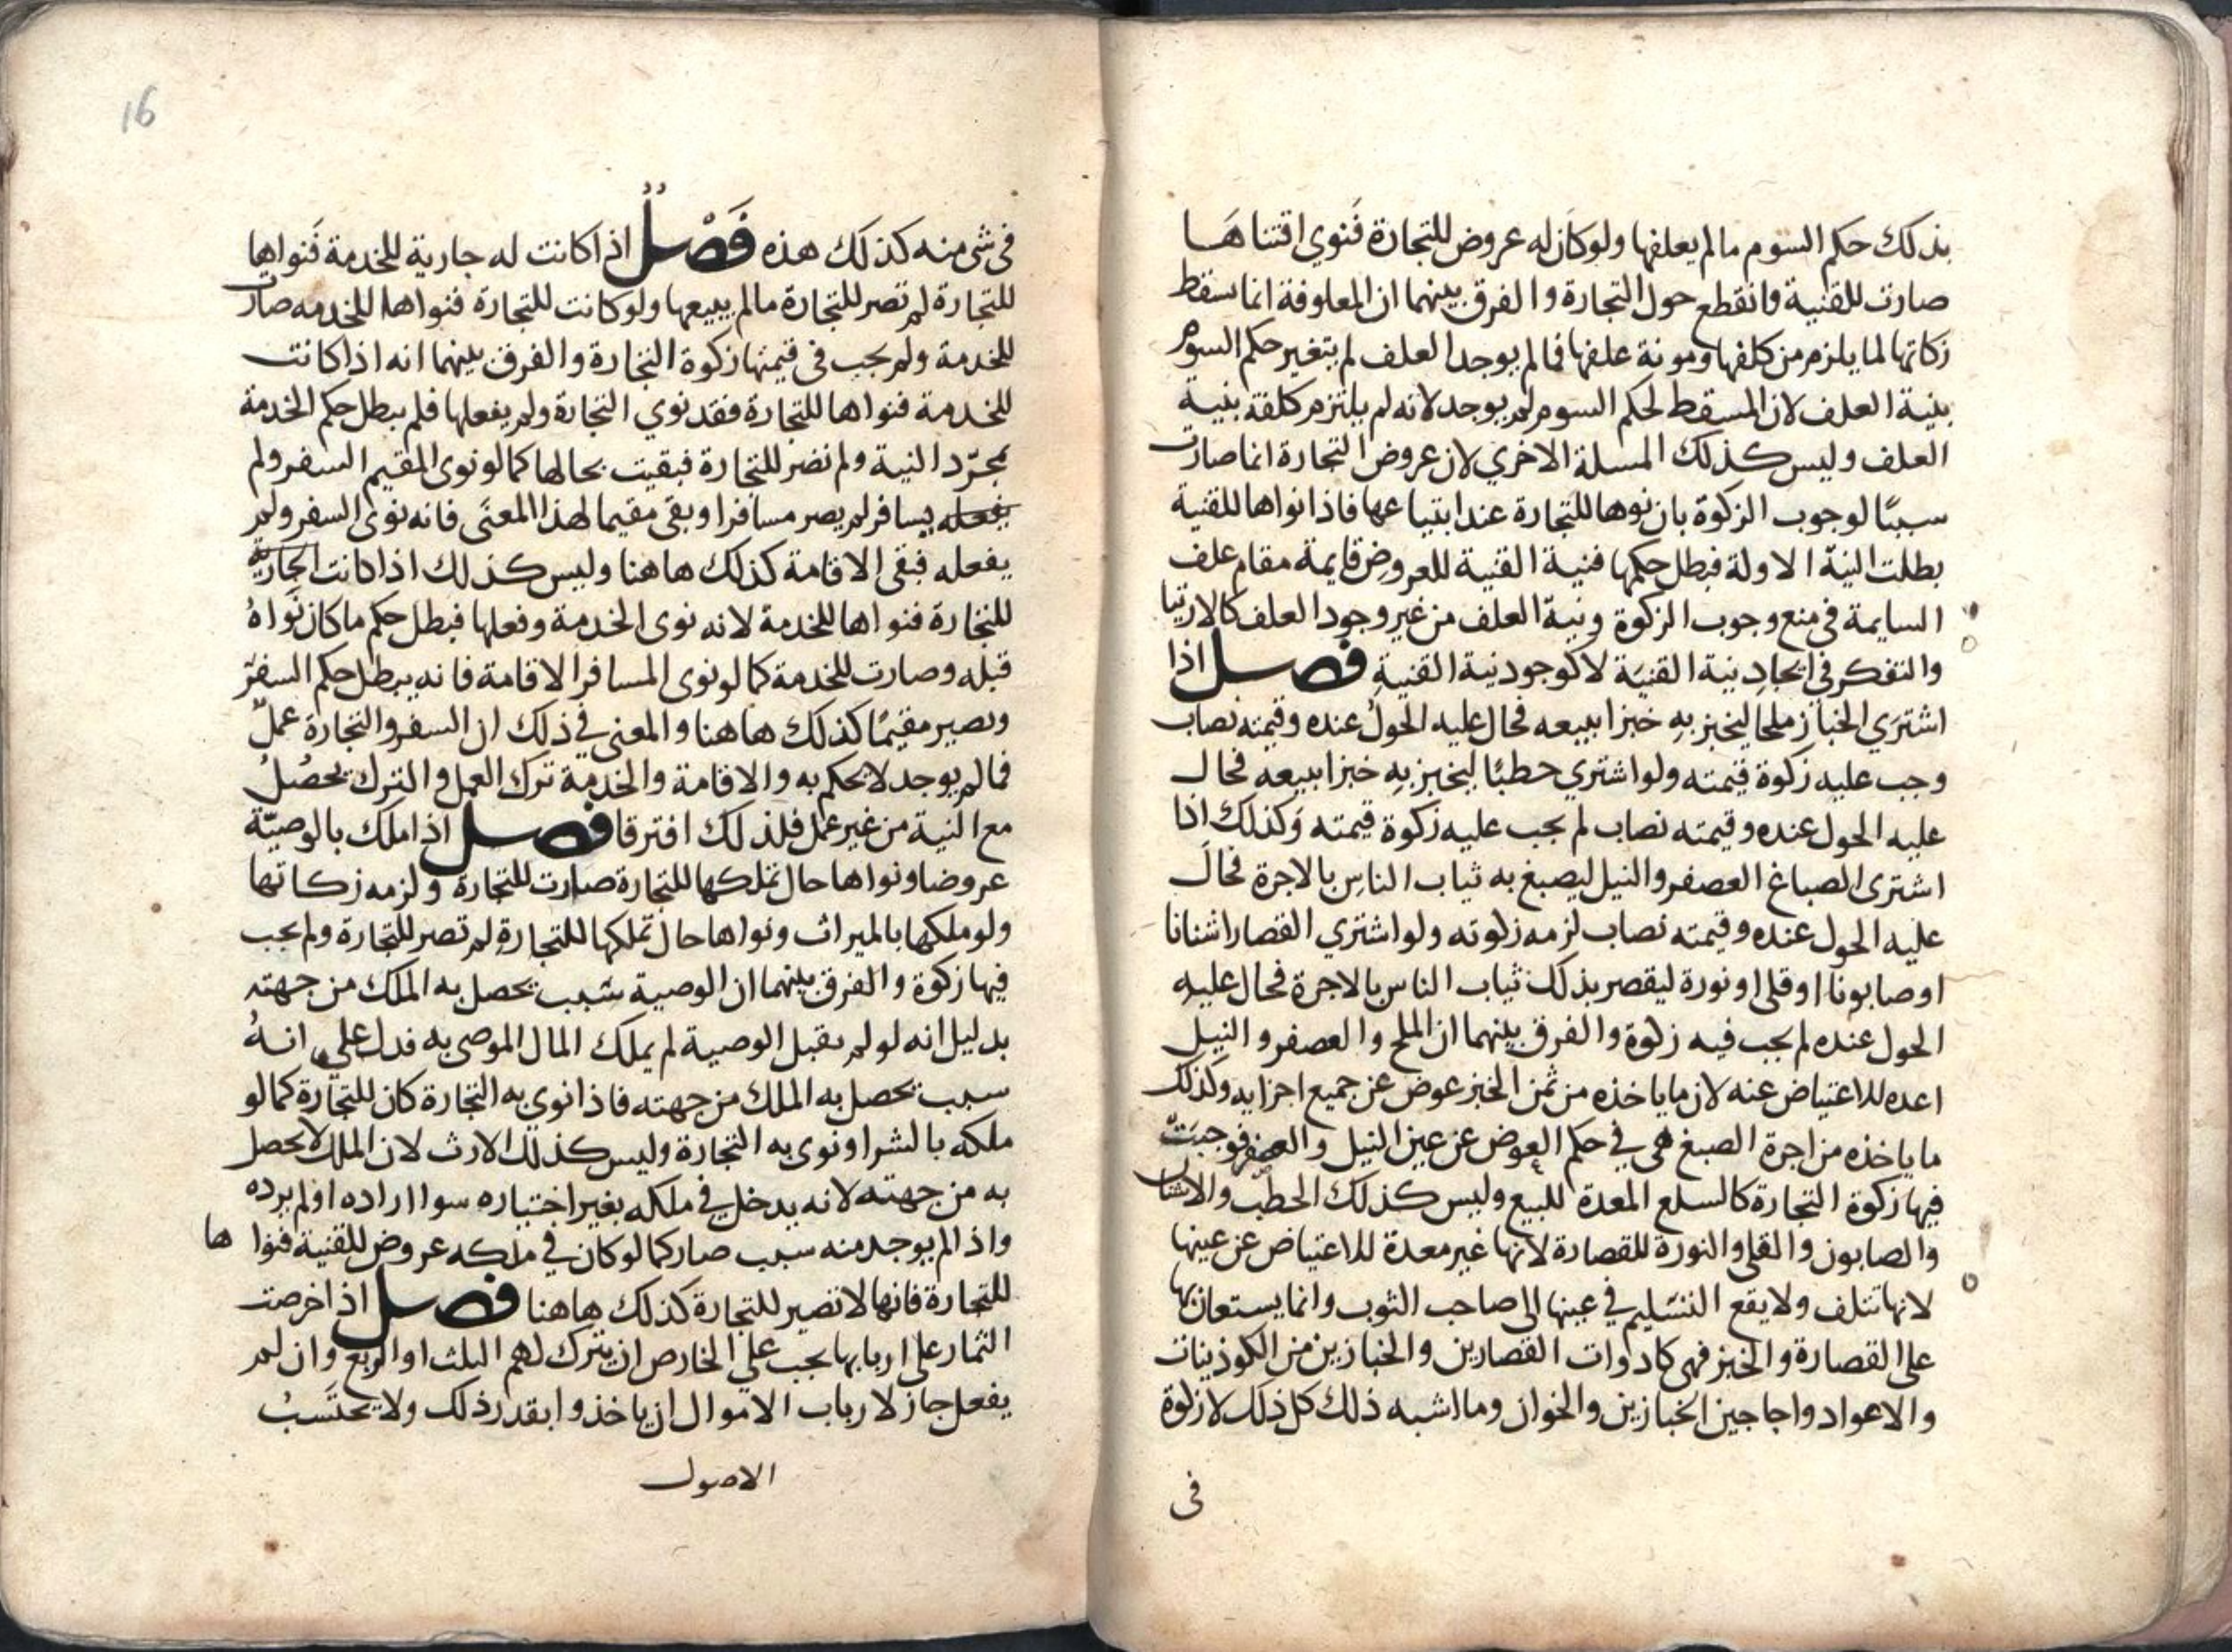 بذلك حكم السوم مالم يعلفها ولو كان له عروض للتجارة فنوي اقتناها
صارت للقنية وانقطع حول التجارة والفرق بينهما ان المعلوفة انما سقط
زكاتها لما يلزم من كلفها ومونة علفها فمالم يوجد العلف لم يتغير حكم السوم
بنية العلف لان المسقط لحكم السوم لم يوجد لانه لم يلتزم كلفة بنية
العلف وليس كذلك المسلة الاخري لان عروض التجارة انما صارت
سببًا لوجوب الزكوة بان نوها للتجارة عند ابتياعها فاذا نواها للقنية
بطلت النيّة الاولة فبطل حكمها فنية القنية للعروض قايمة مقام علف
السايمة في منع وجوب الزكوة ونية العلف من غير وجود العلف كالارتيا
والتفكر في ايجاد نية القنية لا كوجود نية القنية فصل اذا
اشتري الخباز ملحا ليخبز به خبزا يبيعه فحال عليه الحول عنده وقيمته نصاب
وجب عليه زكوة قيمته ولو اشتري حطبًا ليخبز به خبزا يبيعه فحال
عليه الحول عنده وقيمته نصاب لم يجب عليه زكوة قيمته وكذلك اذا
اشترى الصباغ العصفر والنيل ليصبغ به ثياب الناس بالاجرة فحال
عليه الحول عنده وقيمته نصاب لزمه زكوته ولو اشتري القصار اشنانا
او صابونا او قلى او نورة ليقصر بذلك ثياب الناس بالاجرة فحال عليه
الحول عنده لم يجب فيه زكوة والفرق بينهما ان الملح والعصفر والنيل
اعده للاعتياض عنه لان ما ياخذه من ثمن الخبز عوض عن جميع اجزايه وكذلك
ما ياخذه من اجرة الصبغ هي في حكم العوض عن عين النيل والعصفر فوجبت
فيها زكوة التجارة كالسلع المعدة للبيع وليس كذلك الحطب والاشنان
والصابون والقلى والنورة للقصارة لانها غير معدة للاعتياض عن عينها
لانها تتلف ولا يقع التسليم في عينها الى صاحب الثوب وانما يستعان بها
على القصارة والخبز فهي كادوات القصارين والخبازين من الكوذينات
والاعواد واجاجين الخبازين والخوان وما اشبه ذلك كل ذلك لا زكوة
فى
16
فى شى منه كذلك هذه فَصْلٌ اذا كانت له جارية للخدمة فَنواها
للتجارة لم تصر للتجارة مالم يبيعها ولو كانت للتجارة فنواها للخدمه صارت
للخدمة ولم يجب فى قيمتها زكوة التجارة والفرق بينهما انه اذا كانت
للخدمة فنواها للتجارة فقد نوي التجارة ولم يفعلها فلم يبطل حكم الخدمة
بمجرّد النية ولم تصر للتجارة فبقيت بحالها كما لو نوى المقيم السفر ولم
يفعله يسافر لم يصر مسافرا وبقى مقيما لهذا المعنَى فانه نوى السفر ولم
يفعله فبقى الاقامة كذلك هاهنا وليس كذلك اذا كانت الجارية
للتجارة فنواها للخدمة لانه نوى الخدمة وفعلها فبطل حكم ما كان نَواهُ
قبله وصارت للخدمة كما لو نوى المسافر الاقامة فانه يبطل حكم السفر
ويصير مقيمًا كذلك هاهنا والمعنى في ذلك ان السفر والتجارة عملٌ
فمالم يوجد لا يحكم به والاقامة والخدمة ترك العمل والترك يحصُلُ
مع النية من غير عمل فلذلك افترقا فصل اذا ملك بالوصيّة
عروضا ونواها حال تملكها للتجارة صارت للتجارة ولزمه زكاتها
ولو ملكها بالميراث ونواها حال تملكها للتجارة لم تصر للتجارة ولم يجب
فيها زكوة والفرق بينهما ان الوصية سَبب يحصل به الملك من جهته
بدليل انه لو لم يقبل الوصية لم يملك المال الموصى به فدل علي انهُ
سبب يحصل به الملك من جهته فاذا نوى به التجارة كان للتجارة كما لو
ملكه بالشرا ونوى به التجارة وليس كذلك الارث لان الملك لا يحصل
به من جهته لانه يدخل في ملكه بغير اختياره سوا اراده او لم يرده
واذا لم يوجد منه سبب صار كما لو كان في ملكه عروض للقنية فنوا ها
للتجارة فانها لا تصير للتجارة كذلك هاهنا فصل اذا خرصت
الثمار على اربابها يجب علي الخارص ان يترك لهم الثلث او الربع وان لم
يفعل جاز لارباب الاموال ان ياخذوا بقدر ذلك ولا يحتَسبُ
الاصول